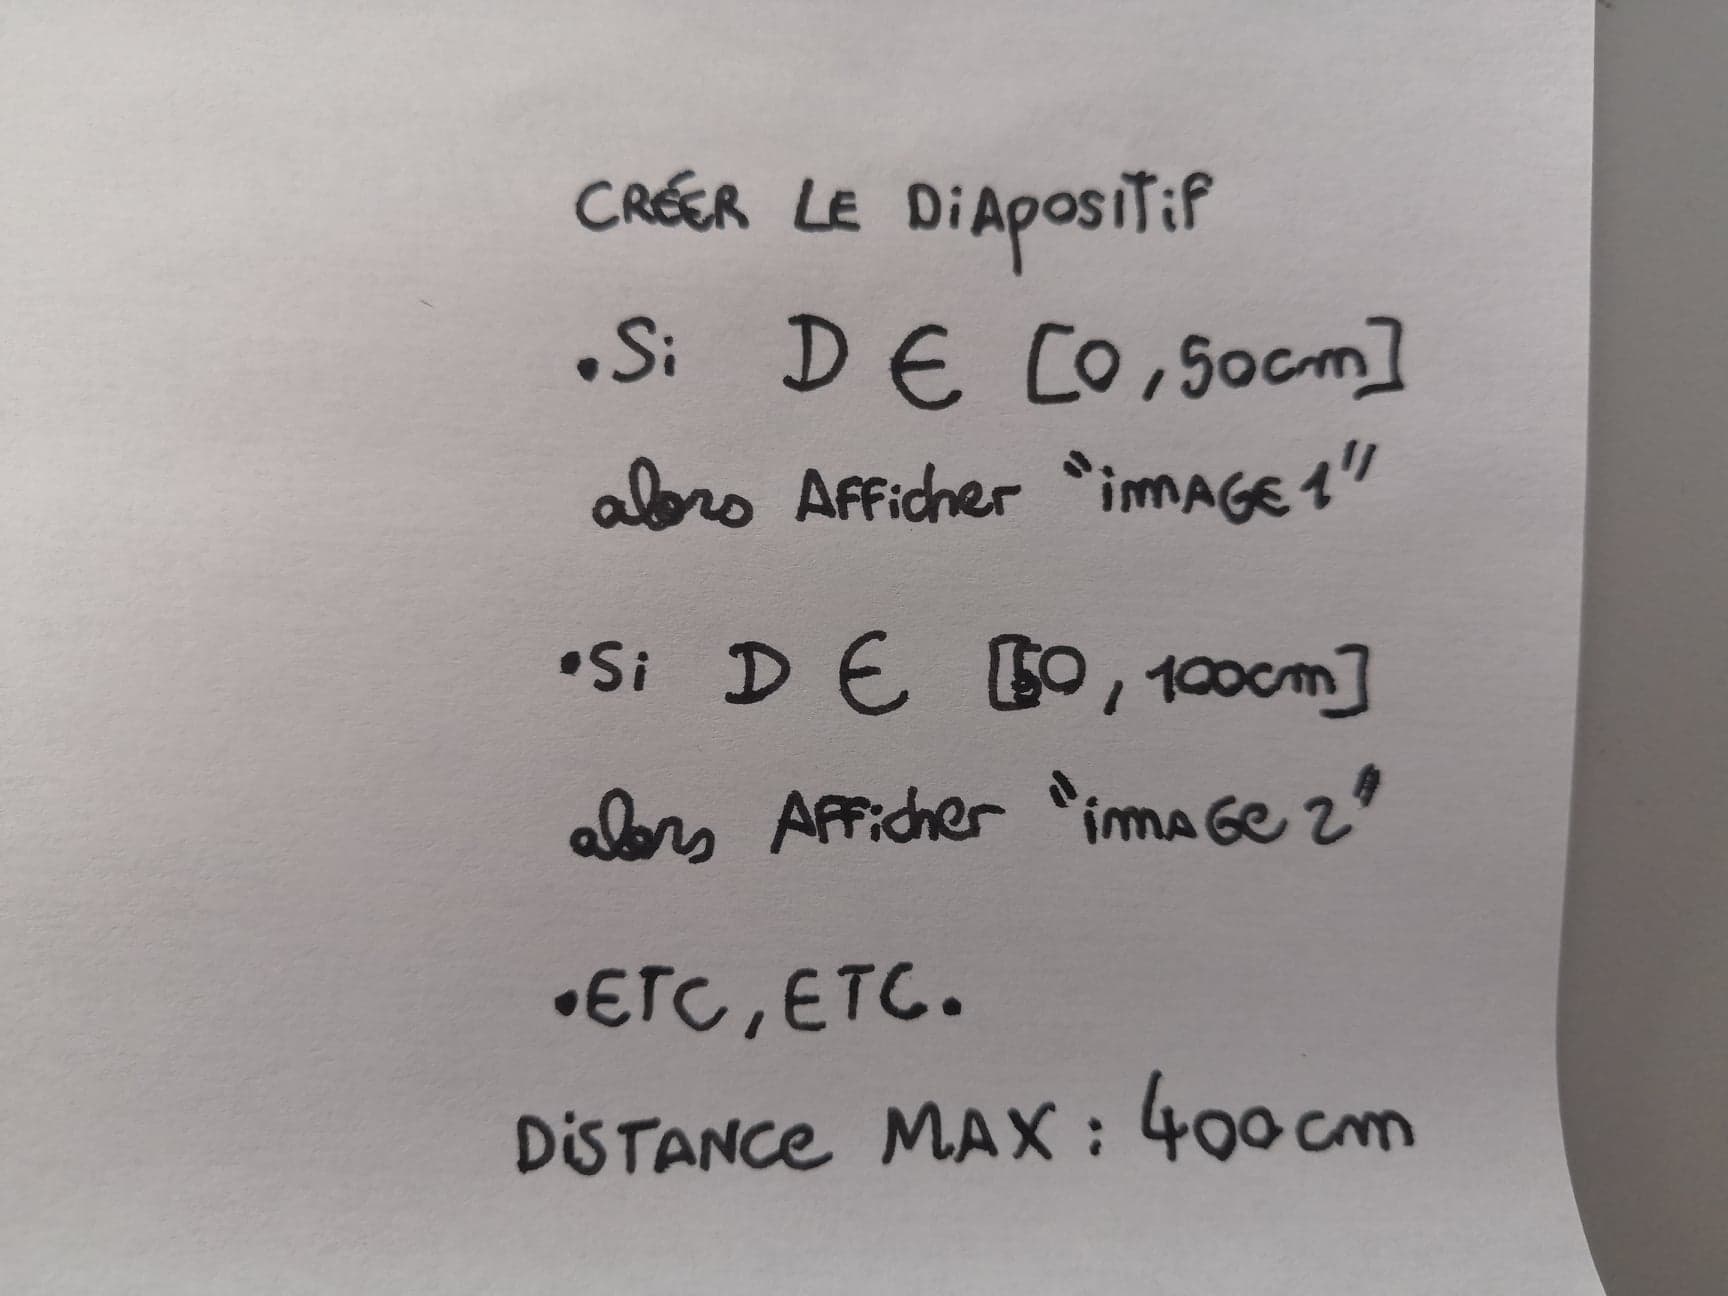 CRÉER LE DiAPOSITIF
.Si D ∈ [0,50cm]
alors AFFicher "iMAGE1"
•Si D ∈ [50, 100cm]
alors AFFicher "iMAGe 2"
•ETC, ETC.
DiSTANCe MAX : 400cm